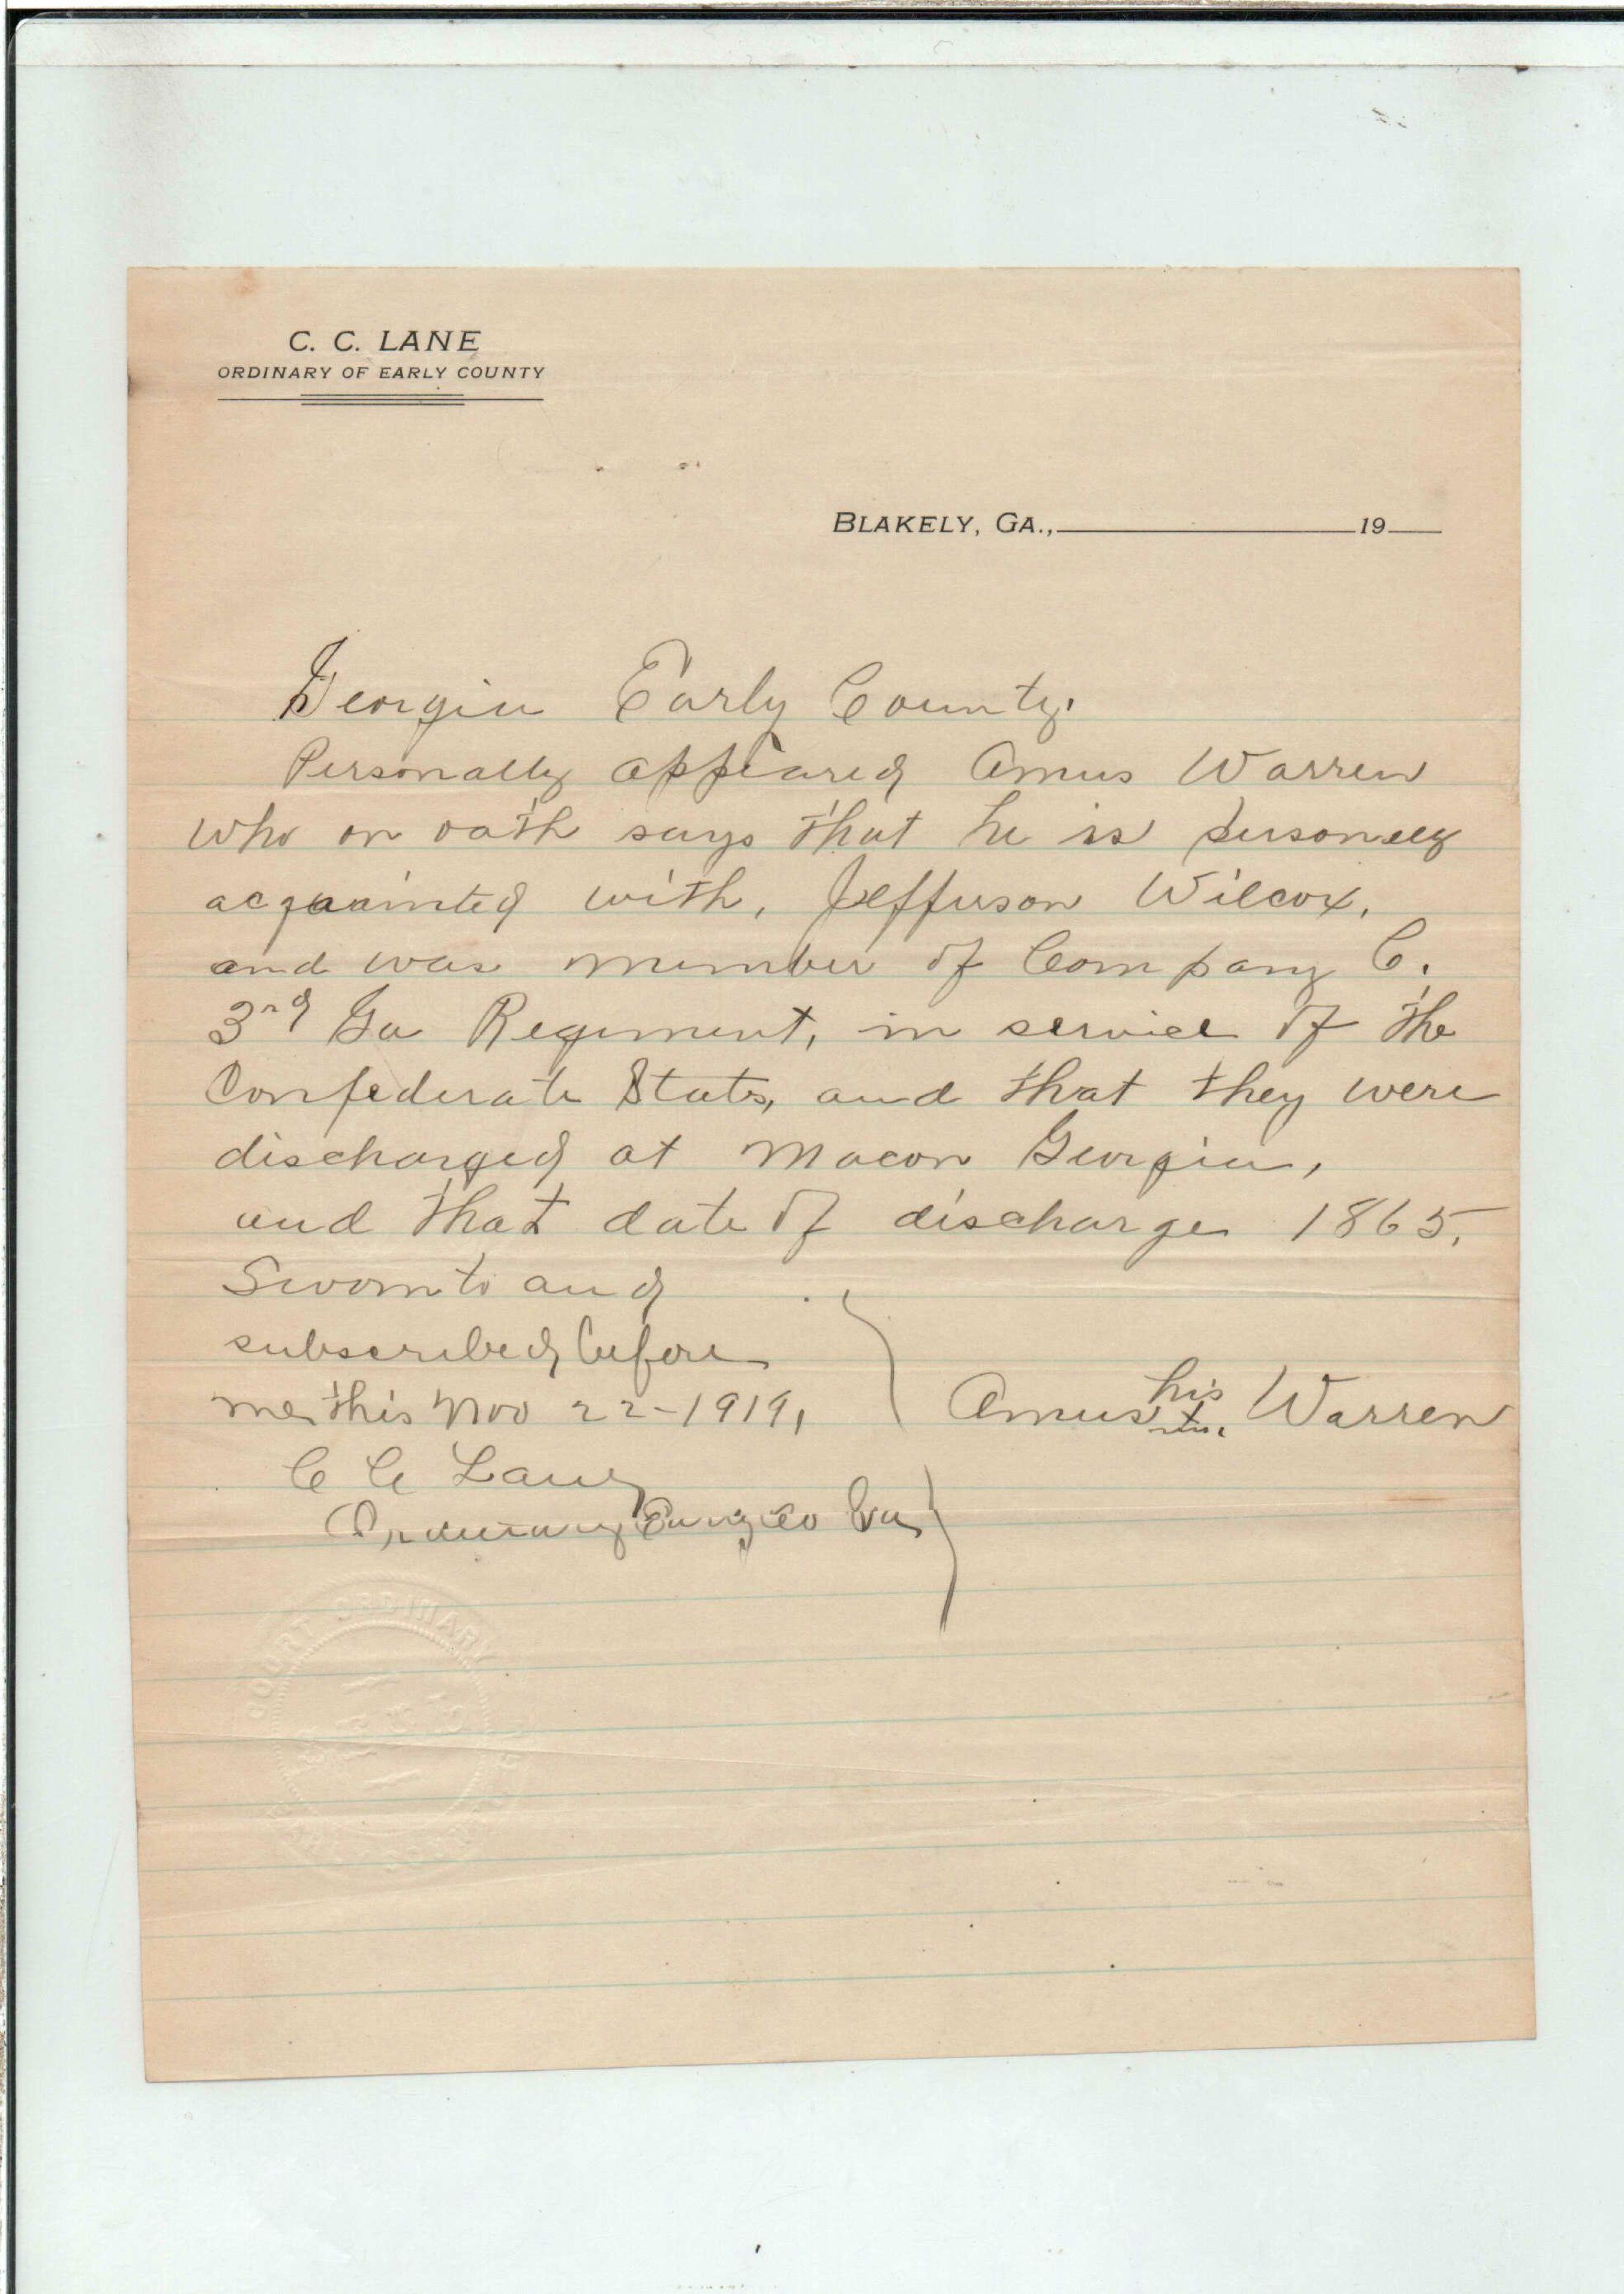 C. C. LANE
ORDINARY OF EARLY COUNTY
BLAKELY, GA., 19
Georgia Early County.
Personally appeared Amus Warren
who on oath says that he is personaly
acquainted with, Jefferson Wilcox,
and was member of Company C.
3rd Ga Regiment, in service of the
Confederate States, and that they were
discharged at Macon Georgia,
and that date of discharge 1865.
Sworn to and
subscribed before
me this Nov 22-1919,
his
Amus x Warren
C C Lane
Ordinary Early Co Ga
COURT ORDINARY